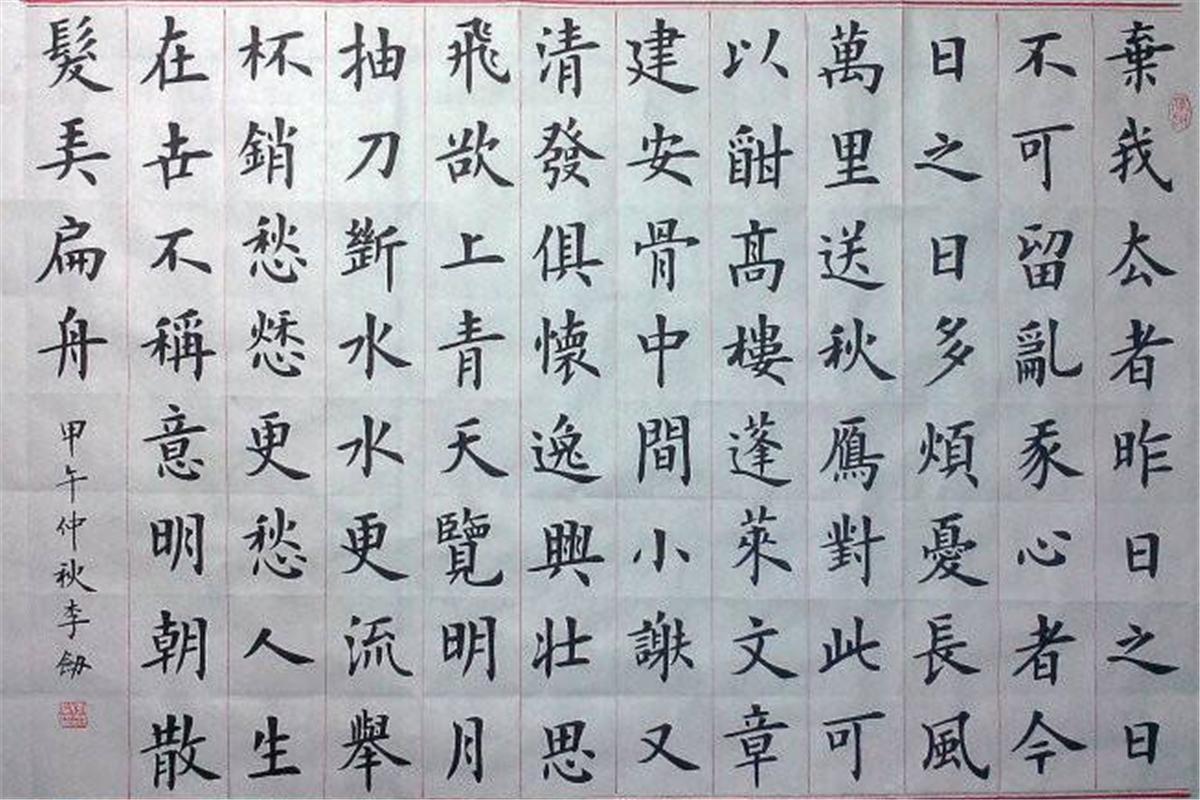 棄我厺者昨日之日
不可留亂我心者今
日之日多煩憂長風
萬里送秋鴈對此可
以酣髙樓蓬萊文章
建安骨中間小謝又
清發俱懷逸興壯思
飛欲上青天覽明月
抽刀斷水水更流舉
杯銷愁愁更愁人生
在世不稱意明朝散
髮弄扁舟
甲午仲秋李